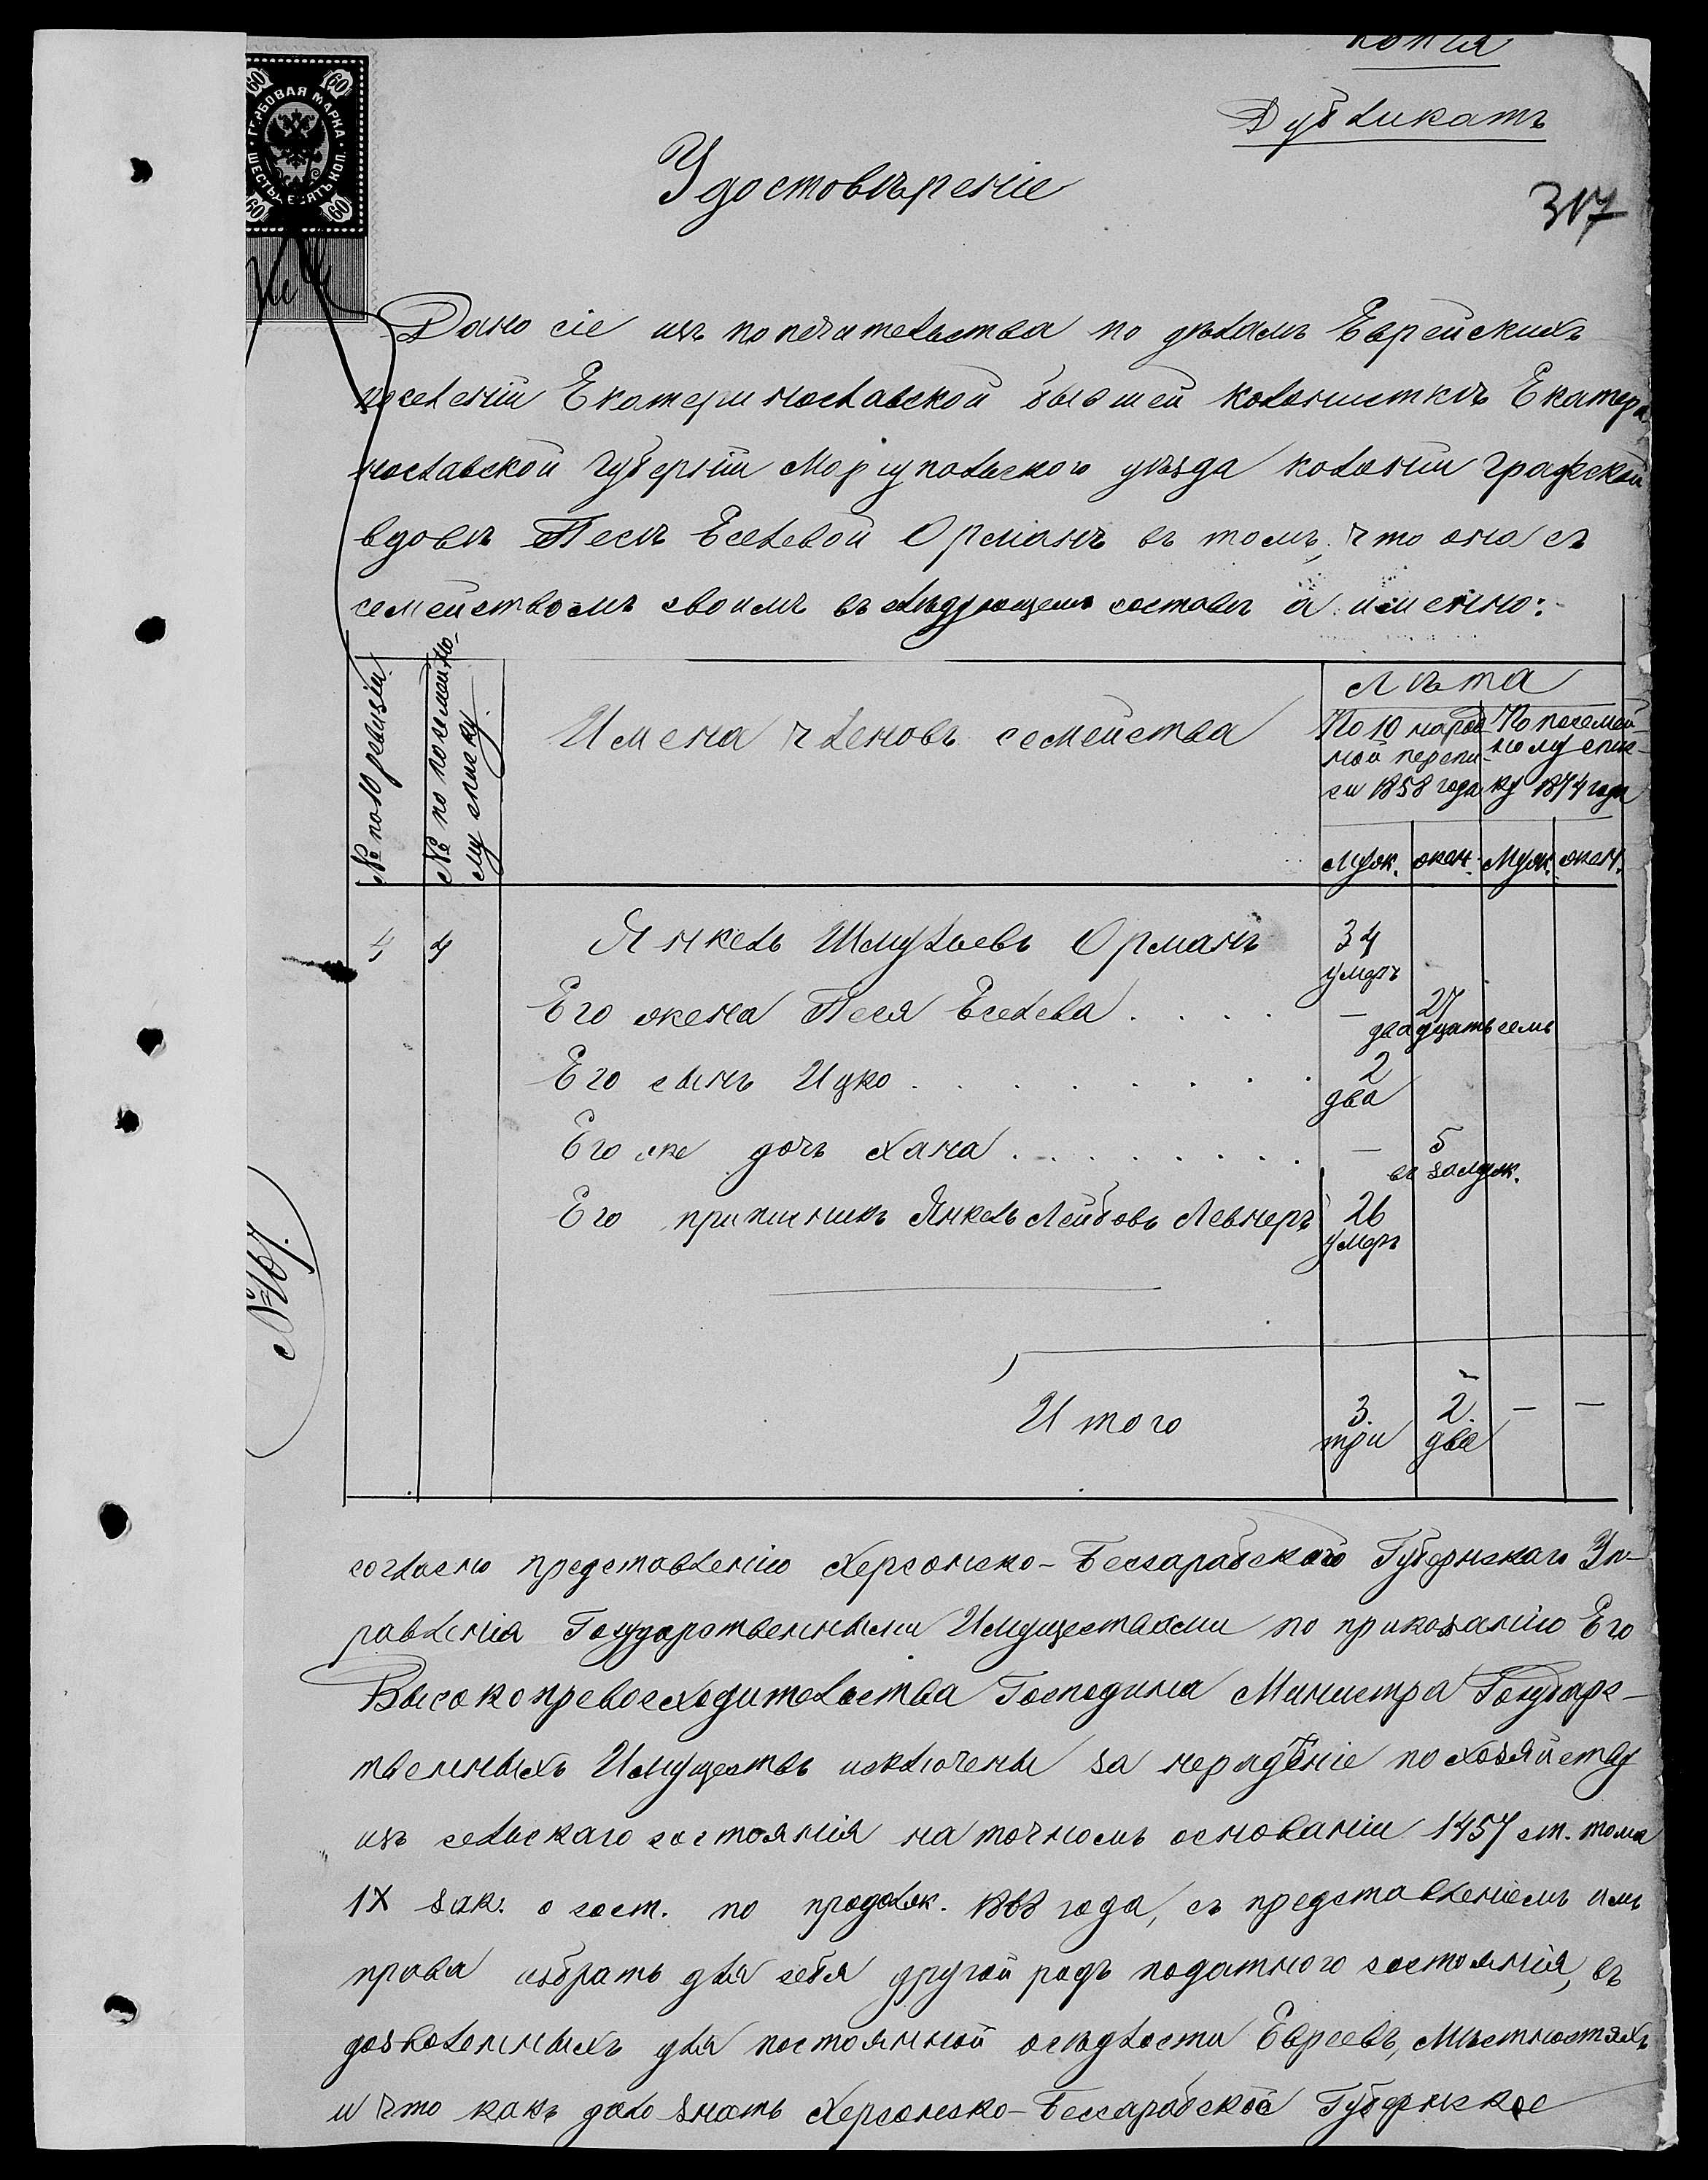 Копія
Дубликатъ
317
ГЕРБОВАЯ МАРКА
ШЕСТЬДЕСЯТЪ КОП.
60 60 60 60
Удостовѣреніе
Дано сіе изъ попечительства по дѣламъ Еврейскихъ
поселеній Екатеринославской бывшей колонисткѣ Екатери
нославской губерніи Маріупольского уѣзда колоніи Графской
вдовѣ Песѣ Еселевой Орманъ въ томъ, что она съ
семействомъ своимъ въ слѣдующемъ составѣ а именно:
№ по 10 ревизіи
№ по посемейно-
му списку.
Имена членовъ семейства
Лѣта
По 10 народ
ной перепи-
си 1858 года
По посемей-
ному спис-
ку 1874 года
Муж. жен. Муж. жен.
4 4 Янкель Шмульевъ Орманъ 34
умеръ
Его жена Песя Еселева . . . . — 27
двадцать семь
Его сынъ Ицко . . . . . . . . . 2
два
Его же дочь Хана . . . . . . . . . — 5
въ замуж.
Его приписникъ Янкель Лейбовъ Левнеръ 26
умеръ
№ 167.
Итого 3. 2. — —
три две
согласно представленію Херсонско-Бессарабскаго Губернскаго Уп-
равленія Государственными Имуществами по приказанію Его
Высокопревосходительства Господина Министра Государс-
твенныхъ Имуществъ исключены за нерадѣніе по хозяйству
изъ сельскаго состоянія на точномъ основаніи 1457 ст. тома
IX зак. о сост. по продолж. 1868 года, съ представленіемъ имъ
права избрать для себя другой родъ податного состоянія, въ
дозволенныхъ для постоянной осѣдлости Евреевъ, мѣстностяхъ
и что какъ дало знать Херсонско-Бессарабское Губернское